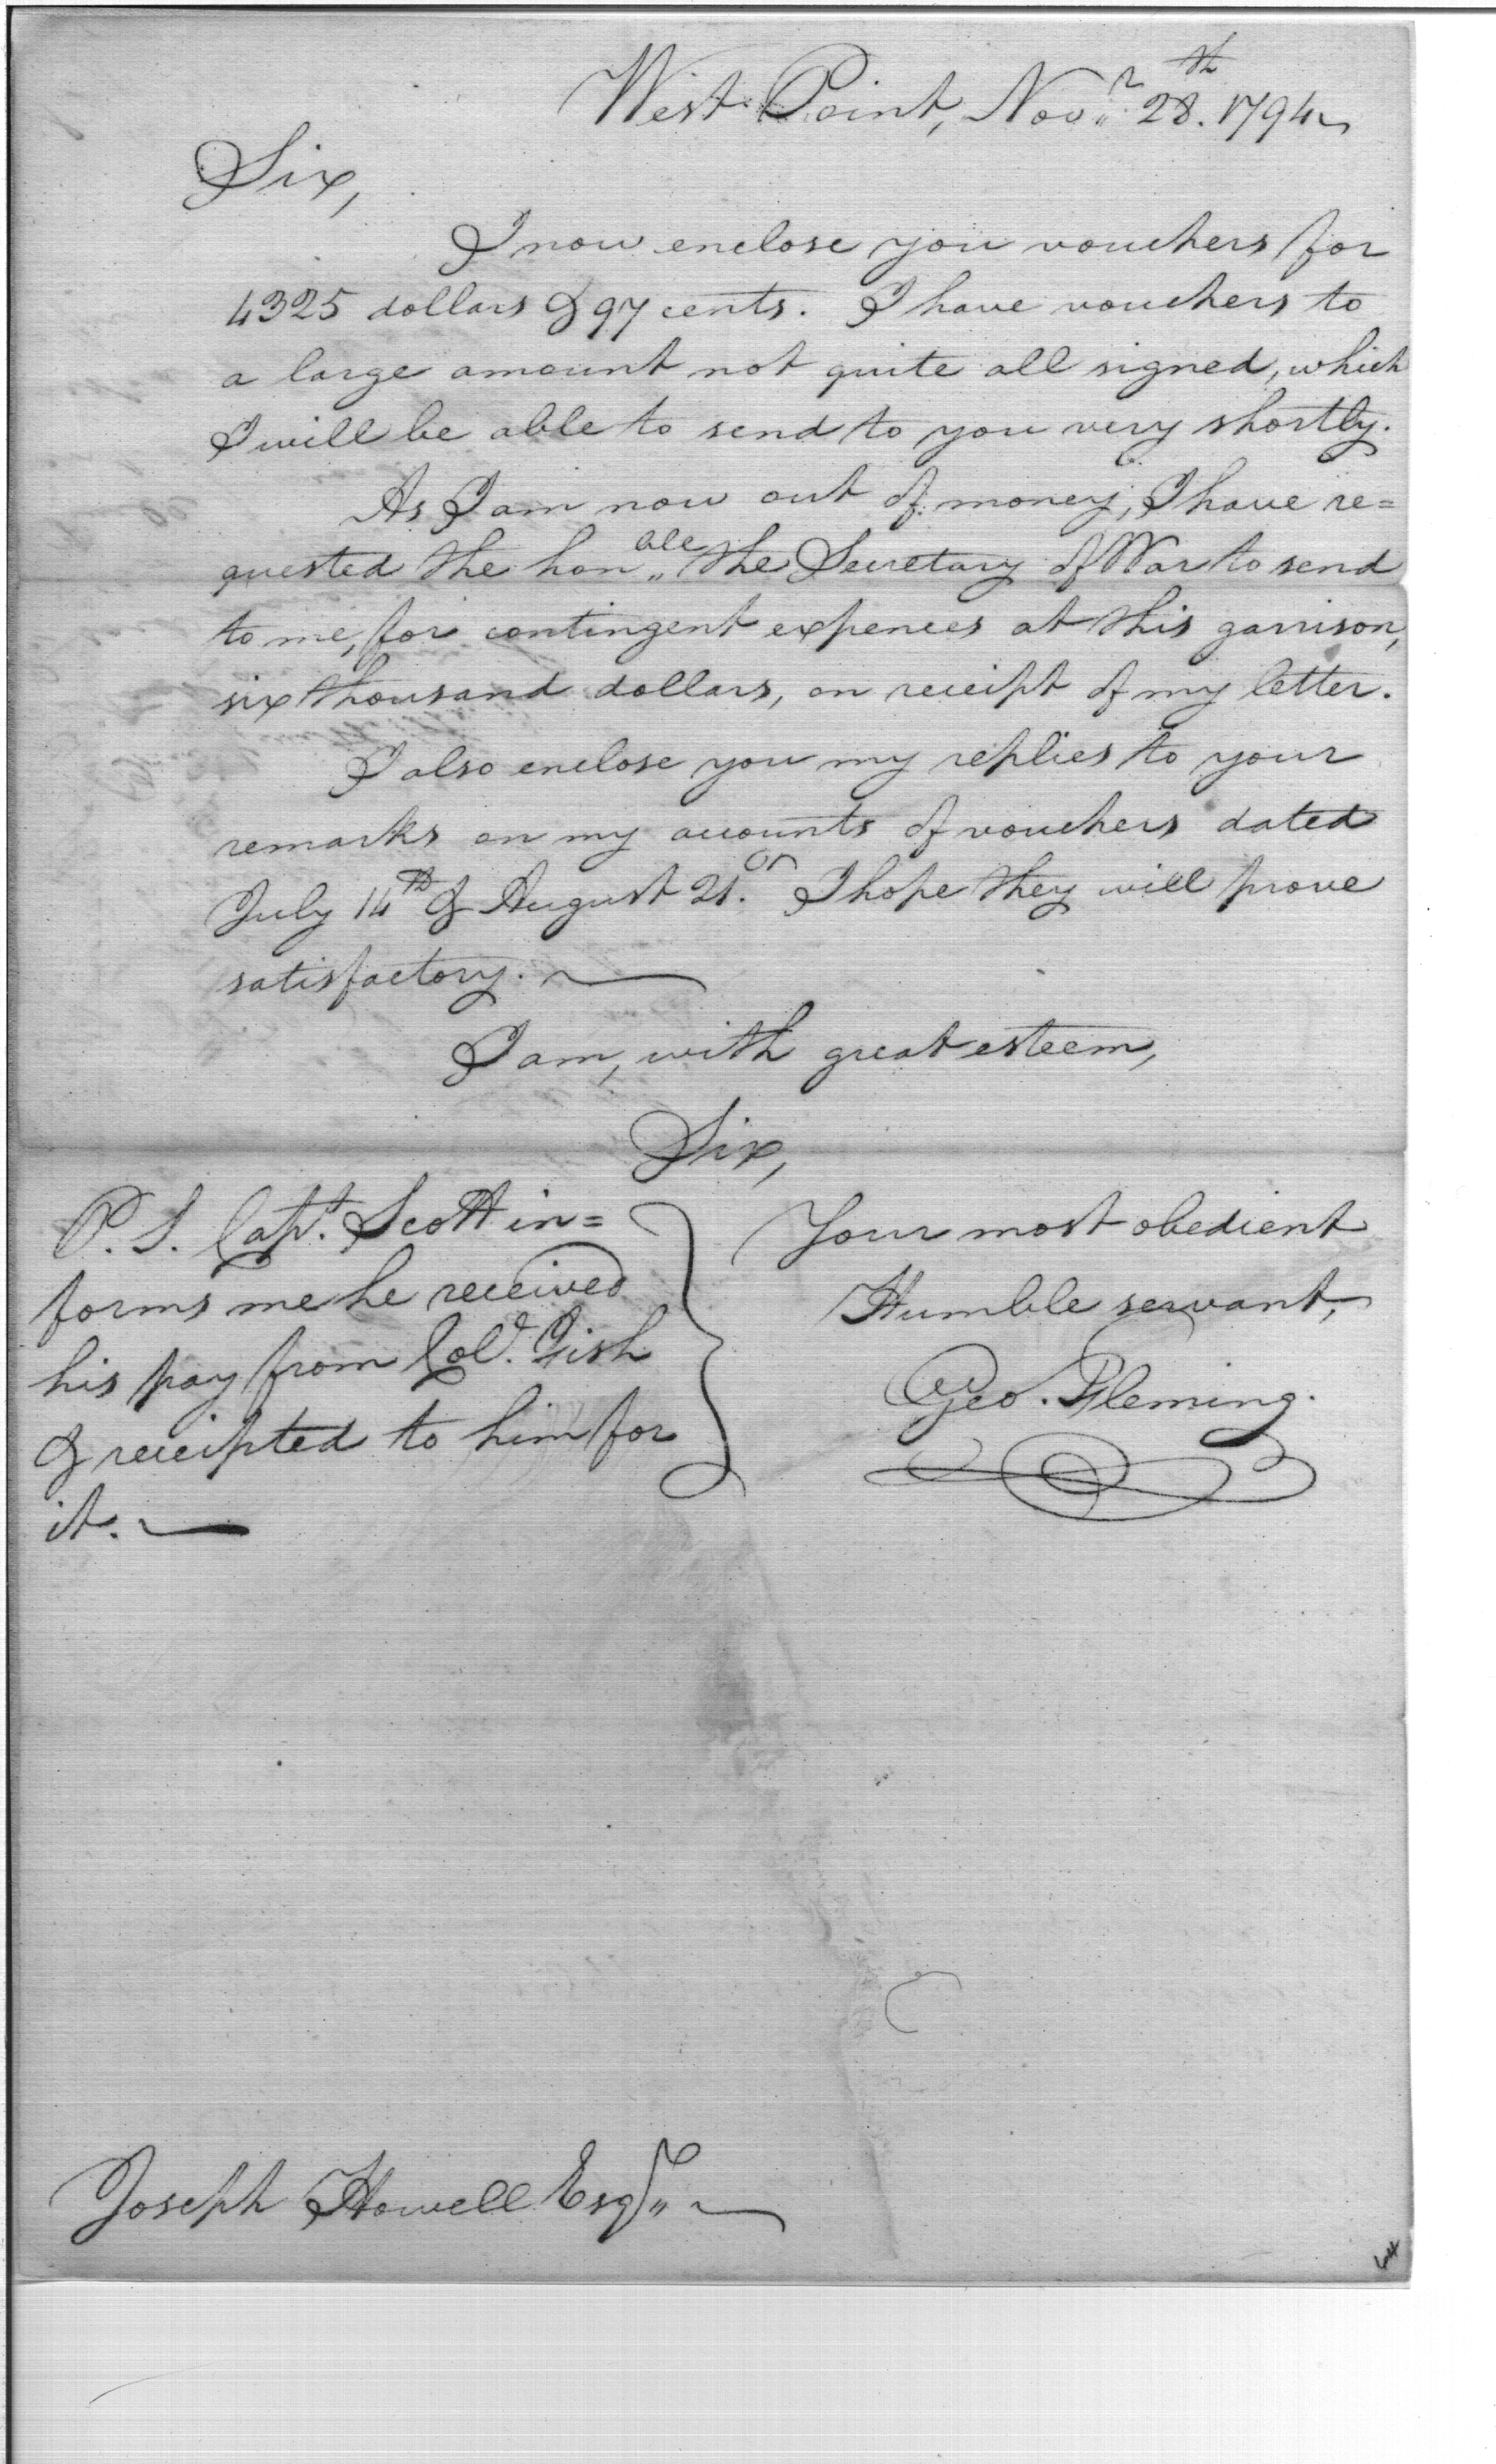 West Point, Novr. 28th. 1794
Sir,
I now enclose you vouchers for
4325 dollars & 97 cents. I have vouchers to
a large amount not quite all signed, which
I will be able to send to you very shortly.
As I am now out of money, I have re=
quested the honable the Secretary of War to send
to me, for contingent expences at this garrison,
six thousand dollars, on receipt of my letter.
I also enclose you my replies to your
remarks on my accounts of vouchers dated
July 14th & August 21. I hope they will prove
satisfactory.
I am, with great esteem,
Sir,
Your most obedient
Humble servant,
Geo. Fleming.
P.S. Capt. Scott in=
forms me he received
his pay from Col. Fish
& receipted to him for
it.
Joseph Howell Esqr